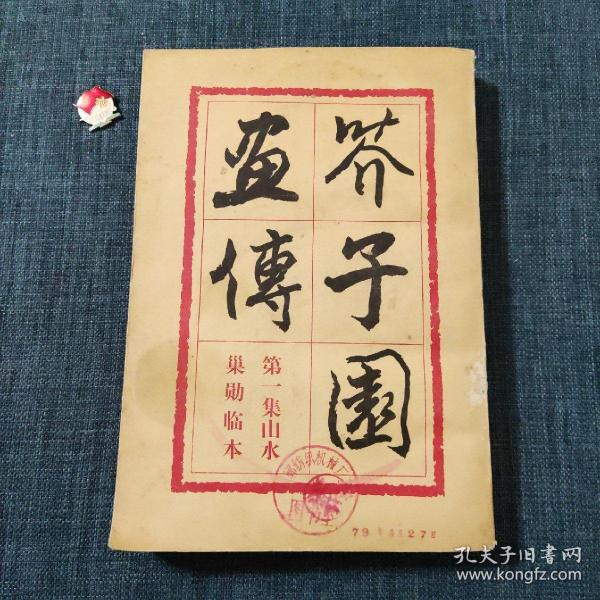 芥子園
畫傳
第一集山水
巢勋临本
纺织机械厂
图书室
孔夫子旧书网
www.kongfz.com